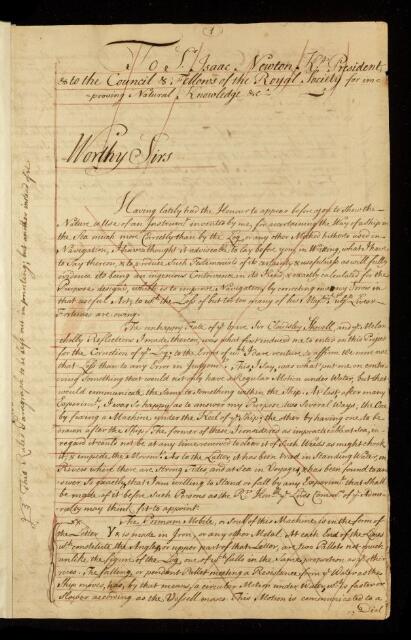 (1)
To Sr. Isaac Newton Kt. President,
& to the Council & Fellows of the Royal Society for im
-proving Natural Knowledge &c
Worthy Sirs
Having lately had the Honour to appear before you to Shew the
Nature & Use of an Instrument invented by me, for ascertaining the Way of a Ship in
the Sea much more Exactly than by the Log, or any other Method hitherto used in
Navigation, I have thought it adviseable to lay before you in Writing, what I have
to Say thereon, & to produce Such Testimonials of its
Evidence its being an ingenious Contrivance in its Kind, & exactly calculated for the
Purpose designed, which is to improve Navigation by correcting many Errors in
that usefull Art, to wch. the Loss of but too many of his Majtys. Subjts. Lives &
Fortunes are owing.
The unhappy Fate of ye brave Sir Cloudsley Shovell, and ye Melan
-cholly Reflections I made thereon, was what first induced me to enter on this Project
for the Correction of ye Log, to the Errors of wch. I dare venture to affirm We more owe
that Loss than to any Error in Judgment. This, I Say, was what put me on contri-
ving Something that would not only have a Regular Motion under Water, but that
would communicate the Same to Something within the Ship. At last after many
Experiments, I was So happy as to answer my Purpose two Several Ways, the One
by fixing a Machine under the Keel of ye Ship, & the other by having one to be
drawn after the Ship. The former of these I considered as impracticable at Sea, in
regard it could not be at any time removed to clear it of Such Weeds as might choak
it, & impede the Motion. As to the Latter, it has been tried in Standing Water, in
Rivers where there are Strong Tides, and at Sea in Voyages, & has been found to an
-swer So exactly, that I am willing to Stand or fall by any Experimt. that Shall
be made of it before Such Persons as the Rt. Honble. ye Lords Commrs. of ye Admi-
ralty may think fit to appoint.
The Primum Mobile, or Soul of this Machine, is in the form of
the Letter Y, & is made in Iron, or any other Metal. At each End of the Lines
wch. constitute the Angle, or upper part of that Letter, are two Pallets not much
unlike the figure of the Log, one of wch. falls in the Same proportion as ye other
rises. The falling, or pendant Pallet meeting a Resistance from ye Water as the
Ship moves, has by that means, a circular Motion under Water, wch. is faster or
slower according as the Vessell moves. This Motion is communicated to a
Dial